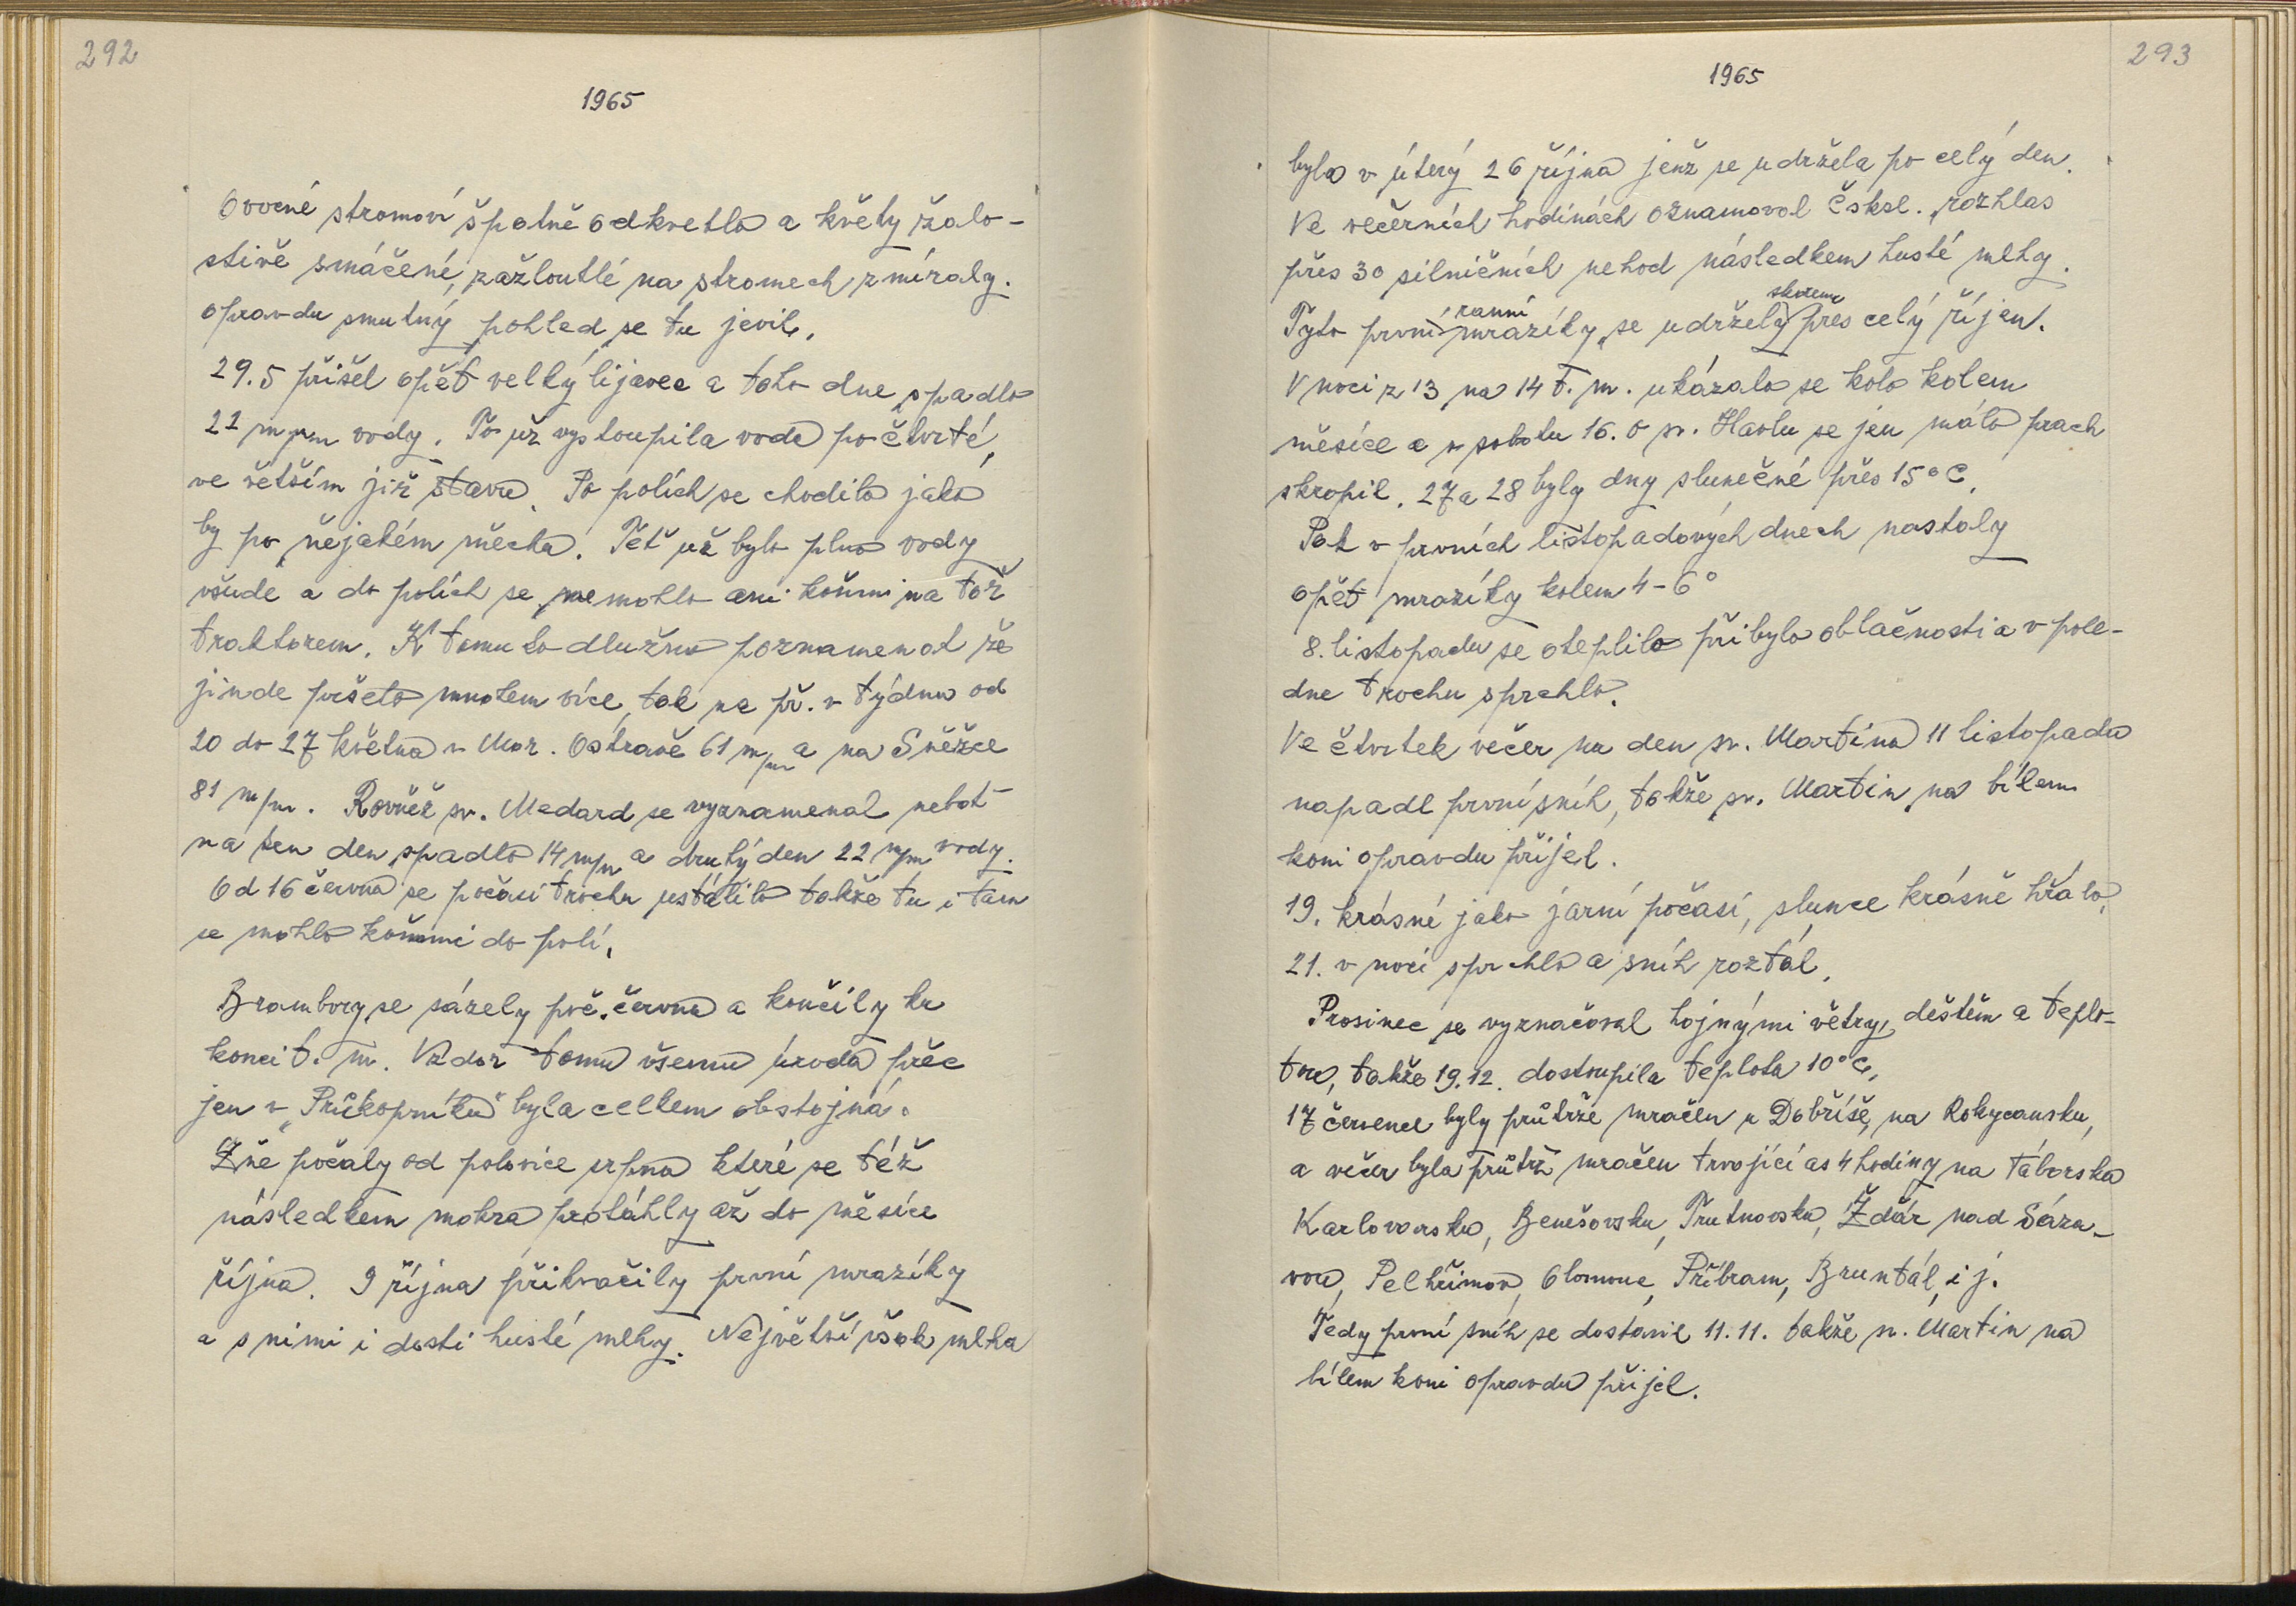 292
1965
Ovocné stromoví špatně odkvetlo a květy žalo-
stivě smáčené, zažloutlé na stromech zmíraly.
opravdu smutný pohled se tu jevil.
29.5 přišel opět velký lijavec a toho dne spadlo
22 m/m vody. To už vystoupila voda po čtvrté,
ve větším již stavu. Po polích se chodilo jako
by po nějakém měchu. Teť už bylo plno vody
všude a do polích se nemohlo ani koňmi na tož
traktorem. K tomuto dlužno poznamenat že
jinde pršelo mnohem více, tak na př. v týdnu od
20 do 27 května v Mor. Ostravě 61 m/m a na Sněžce
81 m/m. Rovněž sv. Medard se vyznamenal neboť
na ten den spadlo 14 m/m a druhý den 22 m/m vody.
Od 16 června se počasí trochu ustálilo takže tu i tam
se mohlo koňmi do polí.
Brambory se sázely poč. června a končily ku
konci t. m. Vzdor tomu všemu úroda přec
jen v „Průkopníku" byla celkem obstojná.
Žně počaly od polovice srpna které se též
následkem mokra protáhly až do měsíce
října. 9 října přikvačily první mrazíky
a s nimi i dosti husté mlhy. Největší však mlha
293
1965
byla v úterý 26 října jenž se udržela po celý den.
Ve večerních hodinách oznamoval Českosl. rozhlas
přes 30 silničních nehod následkem husté mlhy.
Tyto první ranní mrazíky se udržely skorem přes celý říjen.
V noci z 13 na 14 t. m. ukázalo se kolo kolem
měsíce a v sobotu 16. o sv. Havlu se jen málo prach
skropil. 27 a 28 byly dny slunečné přes 15° C.
Pak v prvních listopadových dnech nastaly
opět mrazíky kolem 4-6°
8. listopadu se oteplilo přibylo oblačnosti a v pole-
dne trochu sprchlo.
Ve čtvrtek večer na den sv. Martina 11 listopadu
napadl první sníh, takže sv. Martin na bílem
koni opravdu přijel.
19. krásné jako jarní počasí, slunce krásně hřálo,
21. v noci sprchlo a sníh roztál.
Prosinec se vyznačoval hojnými větry, deštěm a teplo-
tou, takže 19.12. dostoupila teplota 10° C.
17 července byly průtrže mračen u Dobříše, na Rokycansku,
a večer byla průtrž mračen trvající as 4 hodiny na Táborsku
Karlovarsku, Benešovsku, Trutnovsku, Žďár nad Sáza-
vou, Pelhřimov, Olomouc, Příbram, Bruntál, i j.
Tedy první sníh se dostavil 11.11. takže sv. Martin na
bílem koni opravdu přijel.